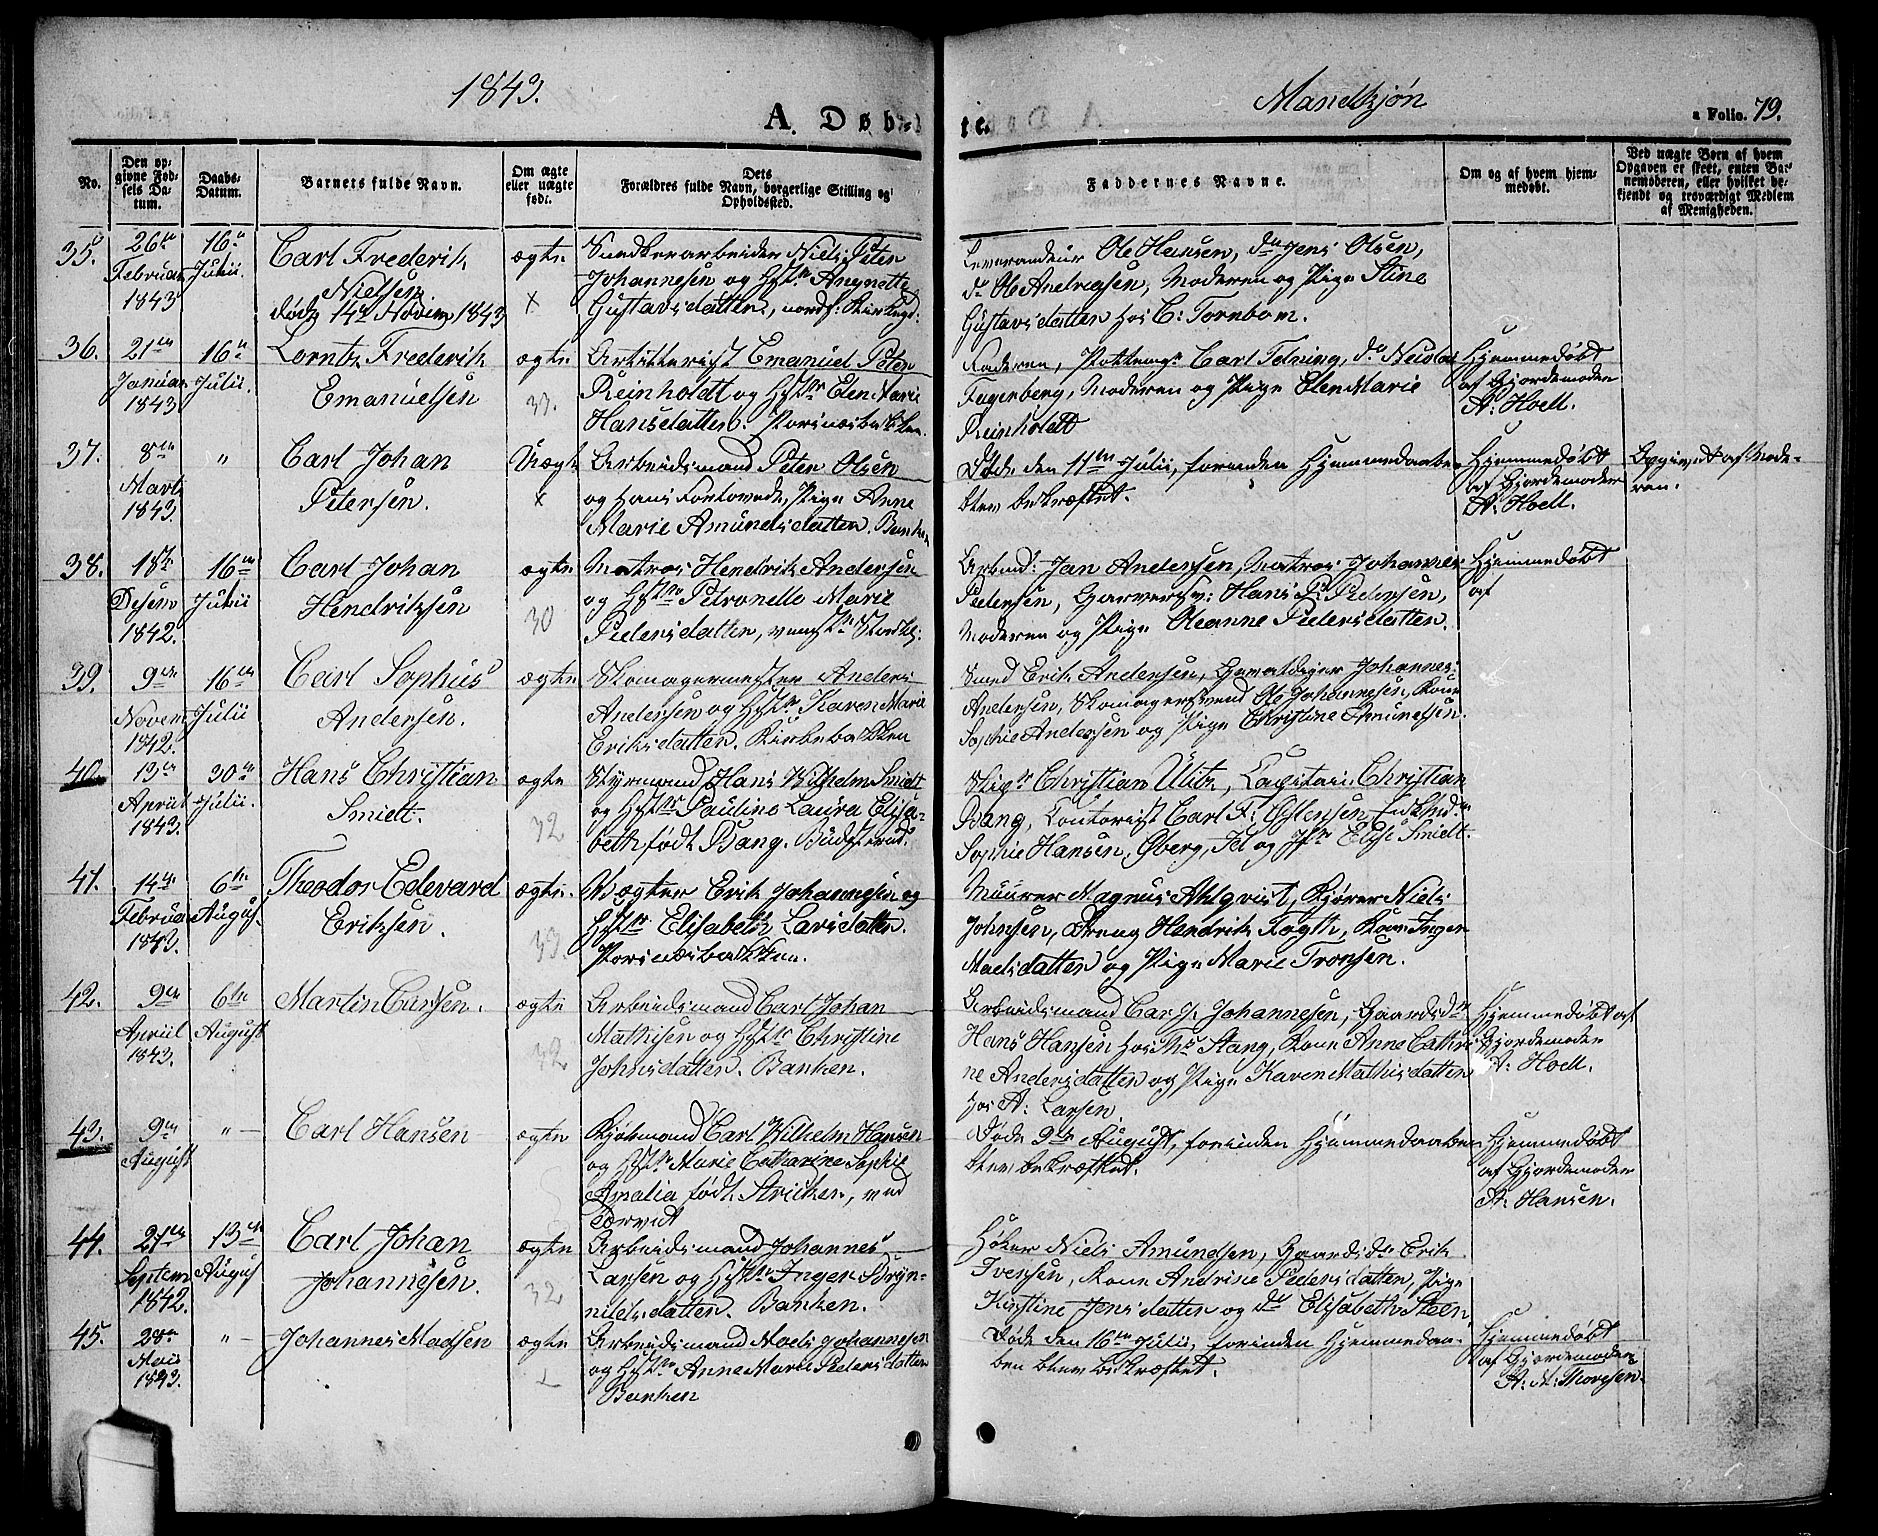 1843.
A. Døbte.
Mandkjøn
a Folio. 79.
No.
Den opgivne Fødsels Datum.
Daabs-Datum.
Barnets fulde Navn.
Om ægte eller uægte født.
Dets Forældres fulde Navn, borgerlige Stilling og Opholdssted.
Faddernes Navne.
Om og af hvem hjemmedøbt.
Ved uægte Børn af hvem Opgaven er skeet, enten Barnemoderen, eller hvilket bekjendt og troværdigt Medlem af Menigheden.
35. 26de Februar 1843 16de Julii
Carl Frederik
Nielsen
døde 14de Novem 1843
ægte
x
Snedkerarbeider Niels Peter
Johannesen og Hstr Angnette
Gustavsdatter, nordf: Kirkegd:
Leverandeur Ole Hansen, do Jens Olsen,
do Ole Andreasen, Moderen og Pige Stine
Gustavsdatter hos C: Tornbom.
36. 21de Januar 1843 16de Julii.
Lornts Frederik
Emanuelsen
ægte
33.
Artillerist Emanuel Peter
Reinholdt og Hstr Elen Marie
Hansdatter. Porsnæsbakken.
Faderen, Carl Felming, do Nicolai
Fagerberg, Moderen og Pige Elen Marie
Reinholdt
Hjemmedøbt
af Gjordemoder
A: Hoell.
37. 8de Marts 1843. "
Carl Johan
Petersen.
Uægte
x
Arbeidsmand Peter Olsen
og hans Forlovede, Pige Anne
Marie Amundsdatter. Banken
Døde den 11te Julii, forinden Hjemmedaaben
blev bekræftet.
Hjemmedøbt
af Gjordemoder
A: Hoell.
Opgivet af Mode-
ren.
38. 18de Desem 1842. 16de Julii
Carl Johan
Hendriksen
ægte
30
Matros Hendrik Andersen
og Hstr Petronelle Marie
Pedersdatter, Storkbg:
Arbmd: Jan Andersen, Matros Johannes
Pedersen, Garversv: Hans P. Pedersen,
Moderen og Pige Oleanne Pedersdatter.
Hjemmedøbt
af
39. 9de Novem 1842. 16de Julii
Carl Sophus
Andersen.
ægte
Skomagermester Anders
Andersen og Hstr Karen Marie
Eriksdatter. Kirkebakken
Smed Erik Andersen, Johannes
Andersen, Skomagersvend Ole Johannesen, Kone
Sophie Andersen og Pige Christine Amundsen.
40. 13de Apriil 1843. 30te Julii.
Hans Christian
Smidt.
ægte
32
Styrmand Hans Wilhelm Smidt
og Hstr Pauline Laura Elisa-
beth født Bang.
Christian Ulits, Capitain Christian
Bang, Contorist Carl F.
Sophie Hansen, Øberg, og Jfr Elise Smidt.
41. 14de Februar 1843. 6te August.
Theodor Edevard
Eriksen.
ægte.
33.
Vægter Erik Johannesen og
Hstr Elisabeth Larsdatter.
Porsnæsbakken.
Muurer Magnus Ahlqvist, Kjører Niels
Johnsen, Dreng Hendrik Fogth, Kone Inger
Madsdatter og Pige Marie Tronsen.
42. 9de Apriil 1843. 6te August
Martin Carlsen.
ægte
32
Arbeidsmand Carl Johan
Mathisen og Hstr Christine
Johnsdatter. Banken.
Arbeidsmand Carl J. Johannesen, Gaardsdr
Hans Hansen hos Ths Stang, Kone Anne Cathri-
ne Andersdatter og Pige Karen Mathisdatter
hos A: Larsen.
Hjemmedøbt af
Gjordemoder
A: Hoell.
43. 9de August " —
Carl Hansen
ægte
Kjøbmand Carl Wilhelm Hansen
og Hstr Marie Catharine Sophie
Amalia født Stricker, ved
Torvet
Døde 9de August, forinden Hjemmedaaben
blev bekræftet.
Hjemmedøbt
af Gjordemoder
A: Hansen.
44. 21de Septem 1842. 13de August
Carl Johan
Johannesen.
ægte
32
Arbeidsmand Johannes
Larsen og Hstr Inger Bryn-
nildsdatter. Banken.
Høker Niels Amundsen, Gaardsdr Erik
Iversen, Kone Andrine Pedersdatter, Pige
Kirstine Jensdatter og do Elisabeth Steen
45. 28de Marts 1843. " —
Johannes Madsen
ægte
Arbeidsmand Mads Johannesen
og Hstr Anne Marie Pedersdatter
Banken
Døde den 16de Julii, forinden Hjemmedaa-
ben blev bekræftet.
Hjemmedøbt
af Gjordemoder
A: M: Thoresen.